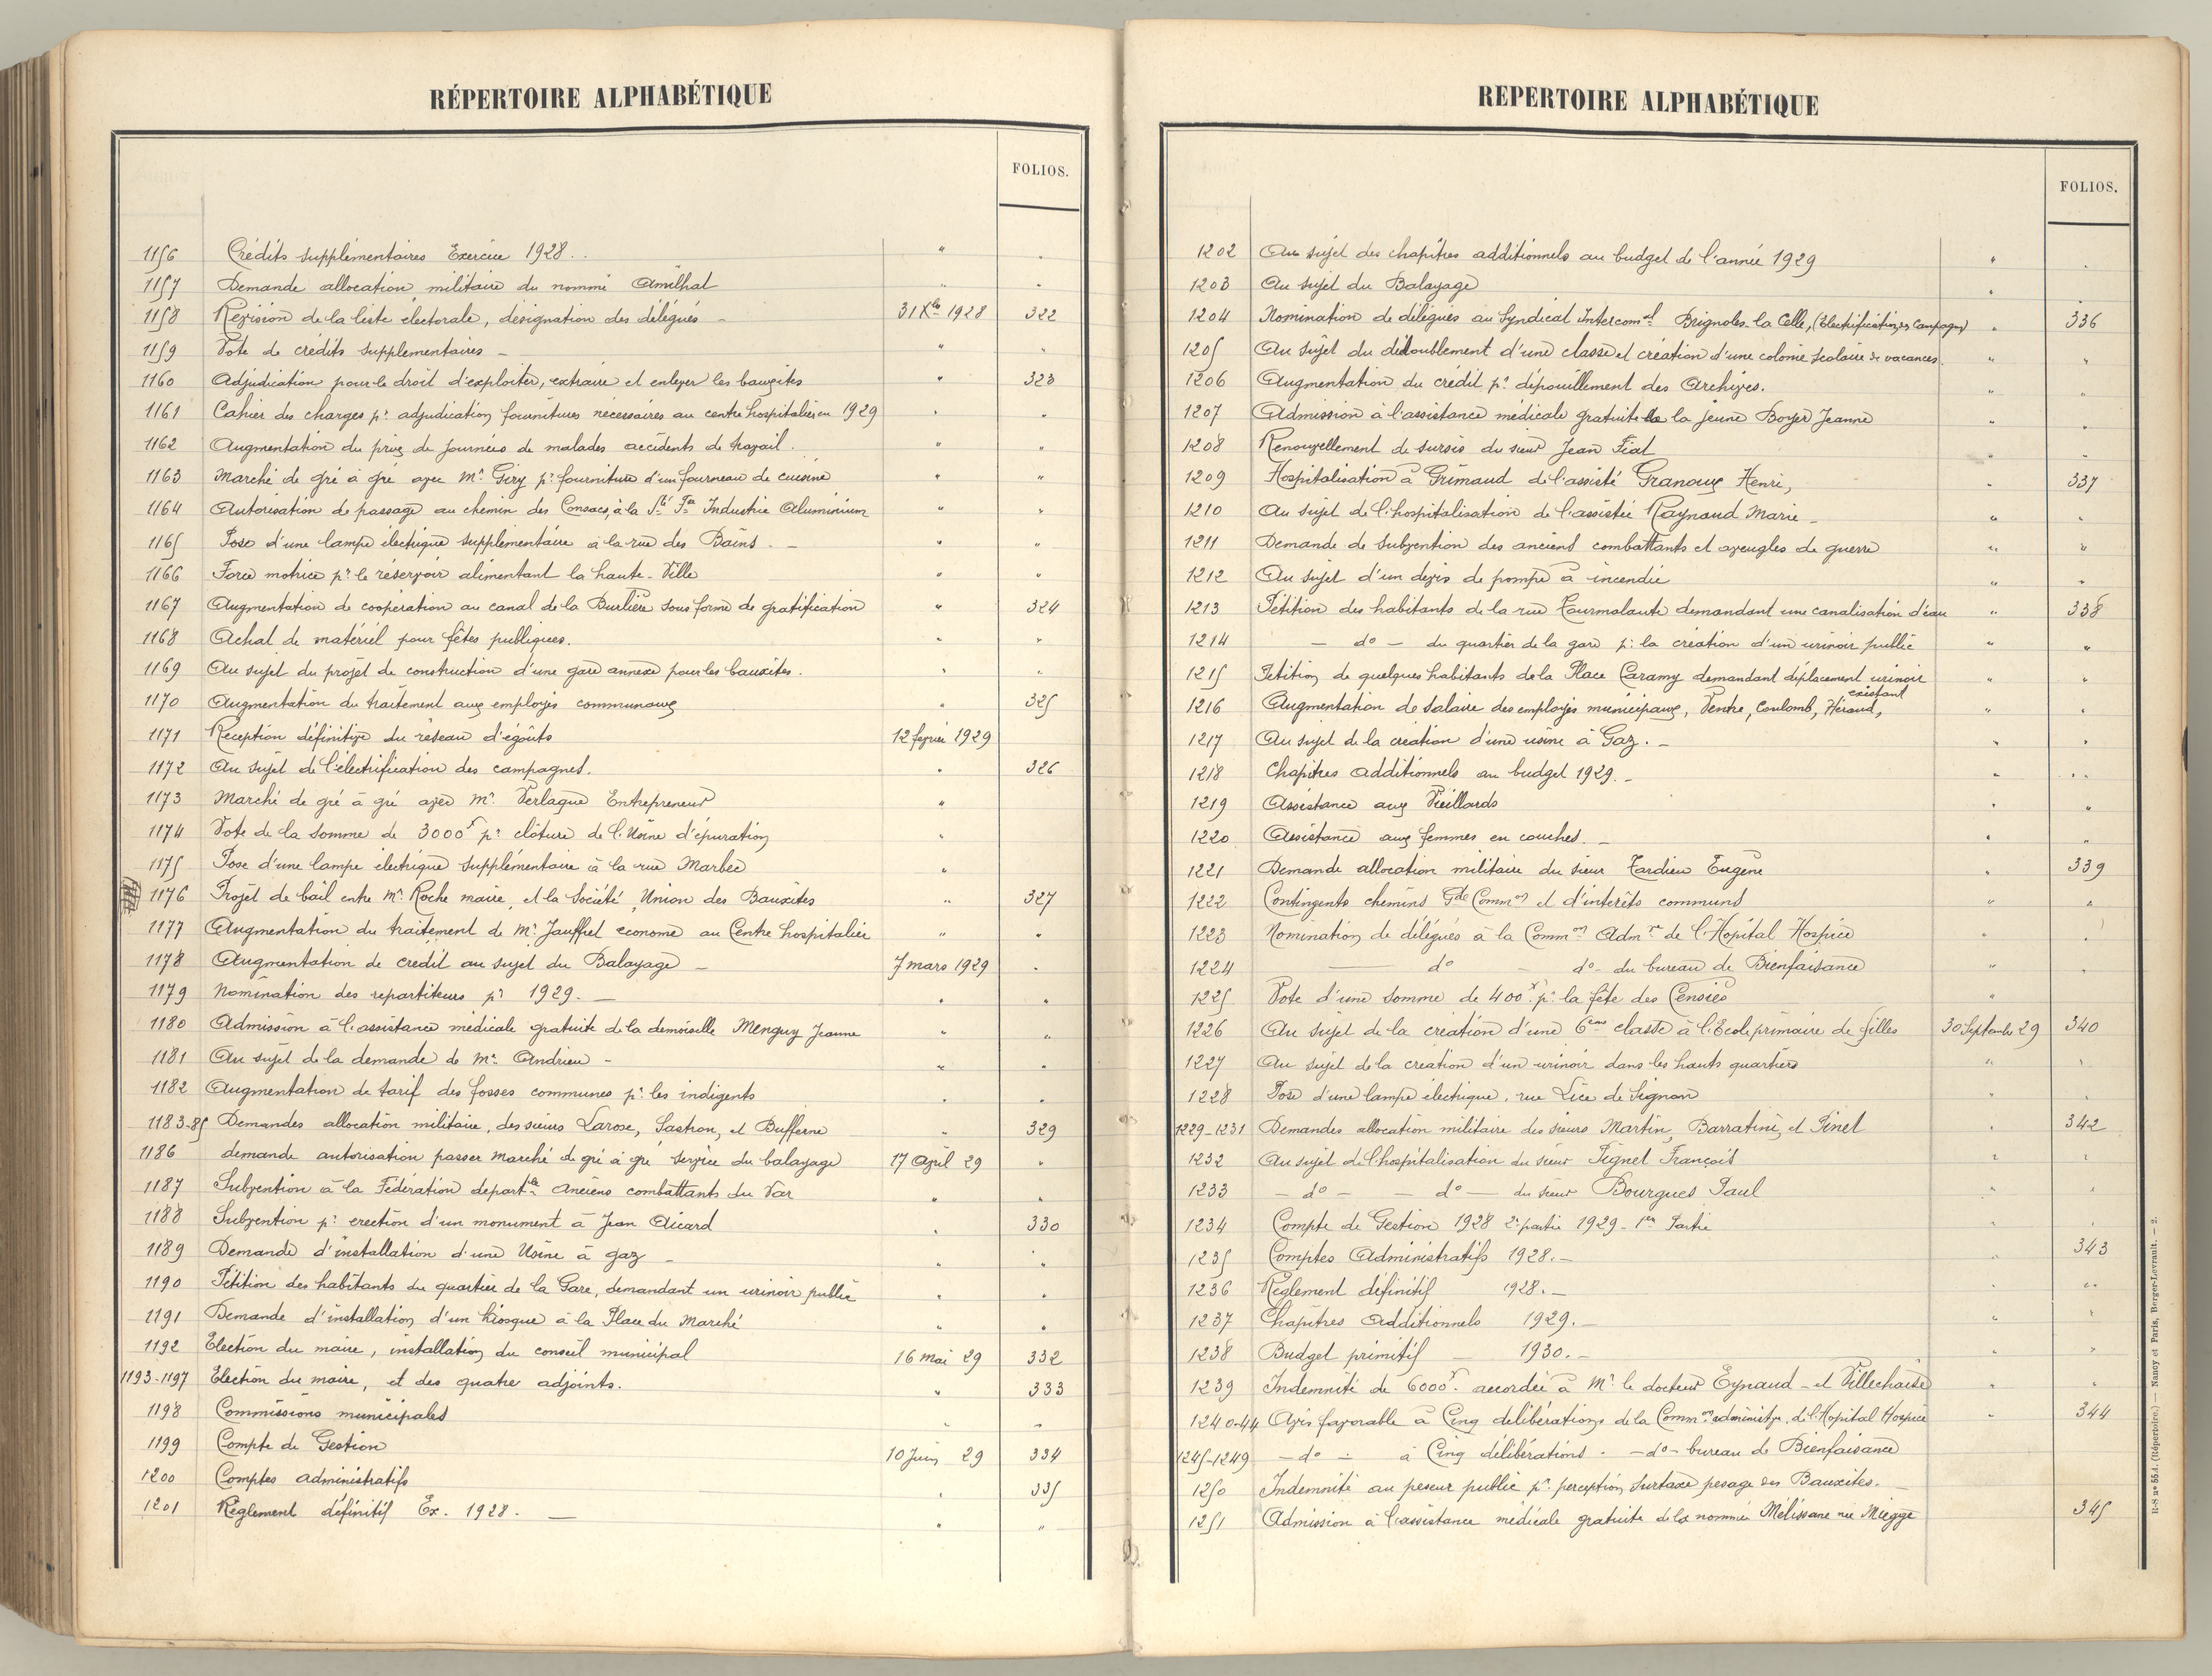 RÉPERTOIRE ALPHABÉTIQUE
FOLIOS.
1156 Crédits supplémentaires Exercice 1928 . . " "
1157 Demande allocation militaire du nommé Amilhat " "
1158 Révision de la liste électorale, désignation des délégués – 31 Xbre 1928 322
1159 Vote de crédits supplémentaires – " "
1160 Adjudication pour le droit d'exploiter, extraire et enlever les bauxites " 323
1161 Cahier des charges pr adjudication fournitures nécessaires au centre hospitalier en 1929 " "
1162 Augmentation du prix de journées de malades accidents de travail . " "
1163 Marché de gré à gré avec Mr Giry pr fourniture d'un fourneau de cuisine " "
1164 Autorisation de passage au chemin des Consacs, à la Sté Fse Industrie Aluminium " "
1165 Pose d'une lampe électrique supplémentaire à la rue des Bains . – " "
1166 Force motrice pr le réservoir alimentant la haute-Ville " "
1167 Augmentation de coopération au canal de la Burlière sous forme de gratification " 324
1168 Achat de matériel pour fêtes publiques. " "
1169 Au sujet du projet de construction d'une gare annexe pour les bauxites. " "
1170 Augmentation du traitement aux employés communaux " 325
1171 Réception définitive du réseau d'égoûts 12 février 1929
1172 Au sujet de l'électrification des campagnes. " 326
1173 Marché de gré à gré avec Mr Verlaque Entrepreneur "
1174 Vote de la somme de 3000f pr clôture de l'Usine d'épuration "
1175 Pose d'une lampe électrique supplémentaire à la rue Marbec "
1176 Projet de bail entre Mr Roche maire, et la Société, Union des Bauxites " 327
1177 Augmentation du traitement de Mr Jauffret économe au Centre hospitalier " "
1178 Augmentation de crédit au sujet du Balayage – 7 mars 1929 "
1179 Nomination des repartiteurs pr 1929. — " "
1180 Admission à l'assistance médicale gratuite de la demoiselle Menguy Jeanne " "
1181 Au sujet de la demande de Mr Andrieu – " "
1182 Augmentation de tarif des fosses communes pr les indigents " "
1183-85 Demandes allocation militaire, des sieurs Larose, Sastron, et Bufferne " 329
1186 demande autorisation passer marché de gré à gré service du balayage 17 Avril 29 "
1187 Subvention à la Fédération départle Anciens combattants du Var " "
1188 Subvention pr erection d'un monument à Jean Aicard " 330
1189 Demande d'installation d'une Usine à gaz – " "
1190 Pétition des habitants du quartier de la Gare, demandant un urinoir public " "
1191 Demande d'installation d'un Kiosque à la Place du Marché " "
1192 Election du maire, installation du conseil municipal 16 mai 29 332
1193-1197 Election du maire, et des quatre adjoints. " 333
1198 Commissions municipales " "
1199 Compte de Gestion 10 Juin 29 334
1200 Comptes administratifs " 335
1201 Règlement définitif Ex. 1928. — " "
REPERTOIRE ALPHABÉTIQUE
FOLIOS.
1202 Au sujet des chapitres additionnels au budget de l'année 1929 " "
1203 Au sujet du Balayage "
1204 Nomination de délégués au Syndicat Intercomal Brignoles-la Celle, (Electrification des Campagnes) " 336
1205 Au sujet du dédoublement d'une classe et création d'une colonie scolaire de vacances. " "
1206 Augmentation du crédit pr dépouillement des Archives. " "
1207 Admission à l'assistance médicale gratuite de la jeune Boyer Jeanne " "
1208 Renouvellement de sursis du sieur Jean Fiat " "
1209 Hospitalisation à Grimaud de l'assisté Granoux Henri, " 337
1210 Au sujet de l'hospitalisation de l'assistée Raynaud Marie – " "
1211 Demande de Subvention des anciens combattants et aveugles de guerre " "
1212 Au sujet d'un devis de pompe à incendie " "
1213 Pétition des habitants de la rue Tourmalante demandant une canalisation d'eau " 338
1214 – do – du quartier de la gare pr la création d'un urinoir public " "
1215 Pétition de quelques habitants de la Place Caramy demandant déplacement urinoir existant " "
1216 Augmentation de salaire des employés municipaux, Ventre, Coulomb, Héraud, " "
1217 Au sujet de la création d'une usine à Gaz. – " "
1218 Chapitres additionnels au budget 1929. – " "
1219 Assistance aux Vieillards " "
1220 Assistance aux femmes en couches. – " "
1221 Demande allocation militaire du sieur Tardieu Eugène " 339
1222 Contingents chemins Gde Common et d'intérêts communs " "
1223 Nomination de délégués à la Common Admve de l'Hôpital Hospice " "
1224 — do – do – du bureau de Bienfaisance " "
1225 Vote d'une somme de 400f pr la fête des Censiés "
1226 Au sujet de la création d'une 6eme classe à l'Ecole primaire de filles 30 Septembre 29 340
1227 Au sujet de la création d'un urinoir dans les hauts quartiers " "
1228 Pose d'une lampe électrique, rue Lice de Signon " "
1229-1231 Demandes allocation militaire des sieurs Martin, Barratini, et Pinet " 342
1232 Au sujet de l'hospitalisation du sieur Pignet François " "
1233 – do – – do — du sieur Bourgues Paul " "
1234 Compte de Gestion 1928 2e partie 1929 - 1ere Partie " "
1235 Comptes Administratifs 1928. – " 343
1236 Règlement définitif 1928. – " "
1237 Chapitres Additionnels 1929. – " "
1238 Budget primitif – 1930. – " "
1239 Indemnité de 6000f. accordée à Mr le docteur Eynaud – et Villechaise " "
1240-44 Avis favorable à Cinq délibérations de la Common administve de l'Hopital Hospice " 344
1245-1249 – do – à Cinq délibérations . – do – bureau de Bienfaisance
1250 Indemnité au peseur public pr perception surtaxe pesage des Bauxites. –
1251 Admission à l'assistance médicale gratuite de la nommée Mélissane née Miegge 345
R-S nº 55d. (Répertoire.) — Nancy et Paris, Berger-Levrault. — 2.